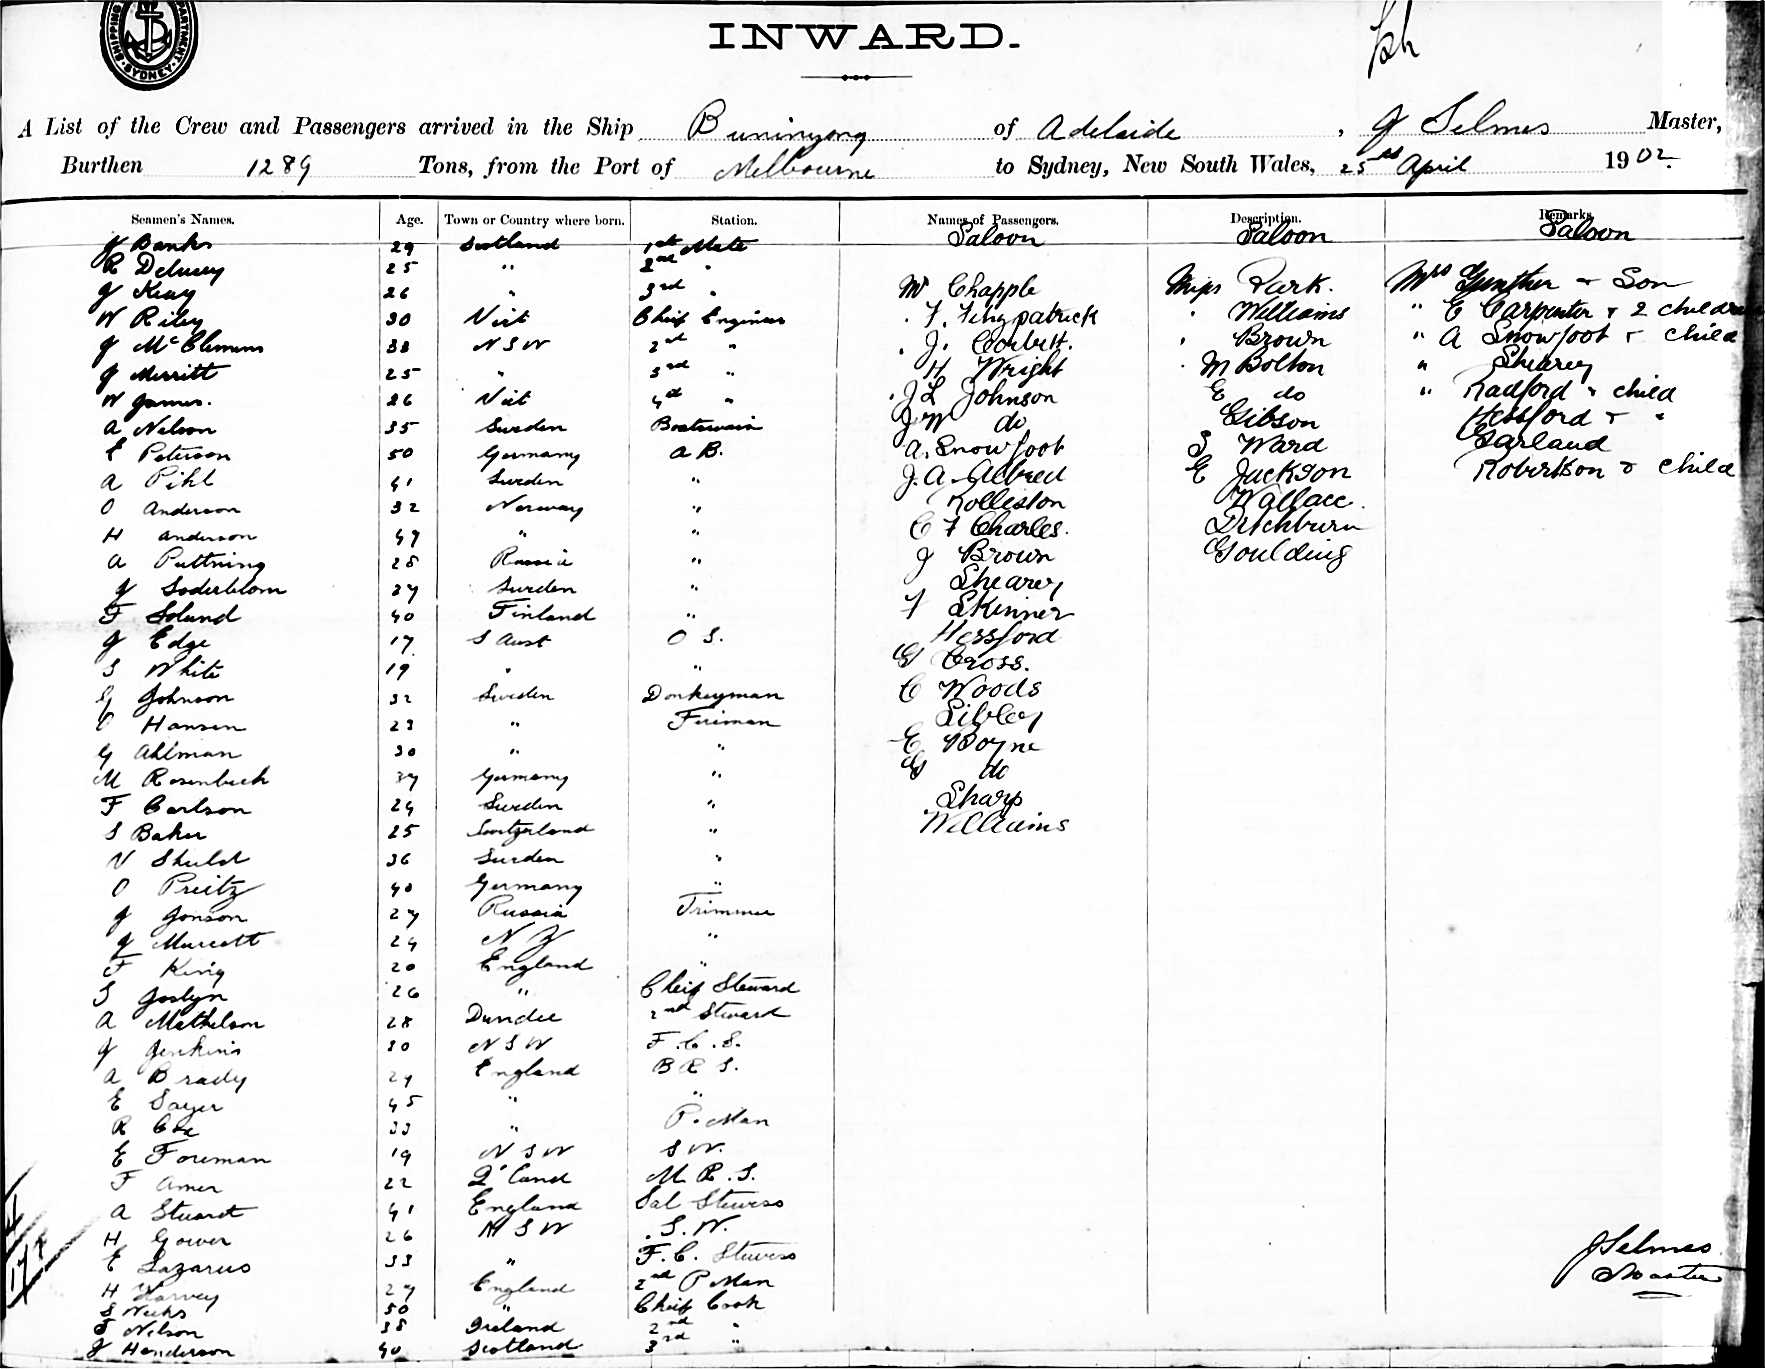 SHIPPING DEPARTMENT. SYDNEY.
INWARD.
A List of the Crew and Passengers arrived in the Ship Buninyong of Adelaide, J Selmes Master,
Burthen 1289 Tons, from the Port of Melbourne to Sydney, New South Wales, 25th April 1902.
Seamen's Names. Age. Town or Country where born. Station. Names of Passengers. Description. Remarks.
J Banks 29 Scotland 1st Mate Saloon Saloon Saloon
R Delurey 25 " 2nd "
J Keay 26 " 3rd " Mr Chapple Miss Park. Mrs Gunther & Son
W Riley 30 Vict Chief Engineer " F. Fitzpatrick " Williams " E Carpenter & 2 children
J McClemens 38 NSW 2nd " " J. Corbett. " Brown " A Snowfoot & child
J Merritt 25 " 3rd " H Wright " M Bolton " Shearey
W James. 26 Vict 4th " " J L Johnson E do " Radford & child
A Nelson 35 Sweden Boatswain J W do Gibson Hessford & "
E Peterson 50 Germany A B. A. Snowfoot S Ward Garland
A Pihl 41 Sweden " J. A. Allbred E Jackson Robertson & child
O Anderson 32 Norway " Rolliston Wallace.
H Anderson 49 " " C F Charles. Ditchburn
A Puttning 28 Russia " J Brown Goulding
J Soderblom 27 Sweden " Shearey
F Solund 40 Finland " F Skinner
J Edge 17 S Aust O S. Hessford
S White 19 " " G Cross.
G Johnson 32 Sweden Donkeyman C Woods
O Hansen 23 " Fireman Sibley
G Ahlman 30 " " E Boyne
M Rosenbeck 37 Germany " G do
F Carlson 24 Sweden " Sharp
S Baker 25 Switzerland " Williams
N Shuldt 36 Sweden "
O Preitz 40 Germany "
J Jonson 27 Russia Trimmer
J Murcott 24 N Z "
F King 20 England "
S Joslyn 26 " Chief Steward
A Mathelson 28 Dundee 2nd Steward
J Jenkins 30 NSW F. C. S.
A Brady 27 England B R S.
E Sayer 45 " "
R Cox 33 " P. Man
E Foreman 19 NSW S W.
F Amer 22 Q'land M. R. S.
A Stuart 41 England Sal Stewess
H Gower 26 NSW S. W.
E Lazarus 33 " F. C. Stewess
H Harvey 27 England 2nd P Man
S Weeks 50 " Chief Cook
T Nelson 38 Ireland 2nd "
J Henderson 40 Scotland 3rd "
J Selmes
Master